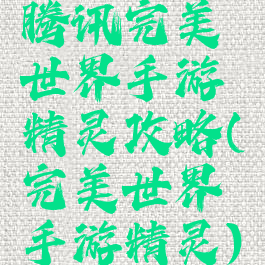 腾讯完美
世界手游
精灵攻略(
完美世界
手游精灵)